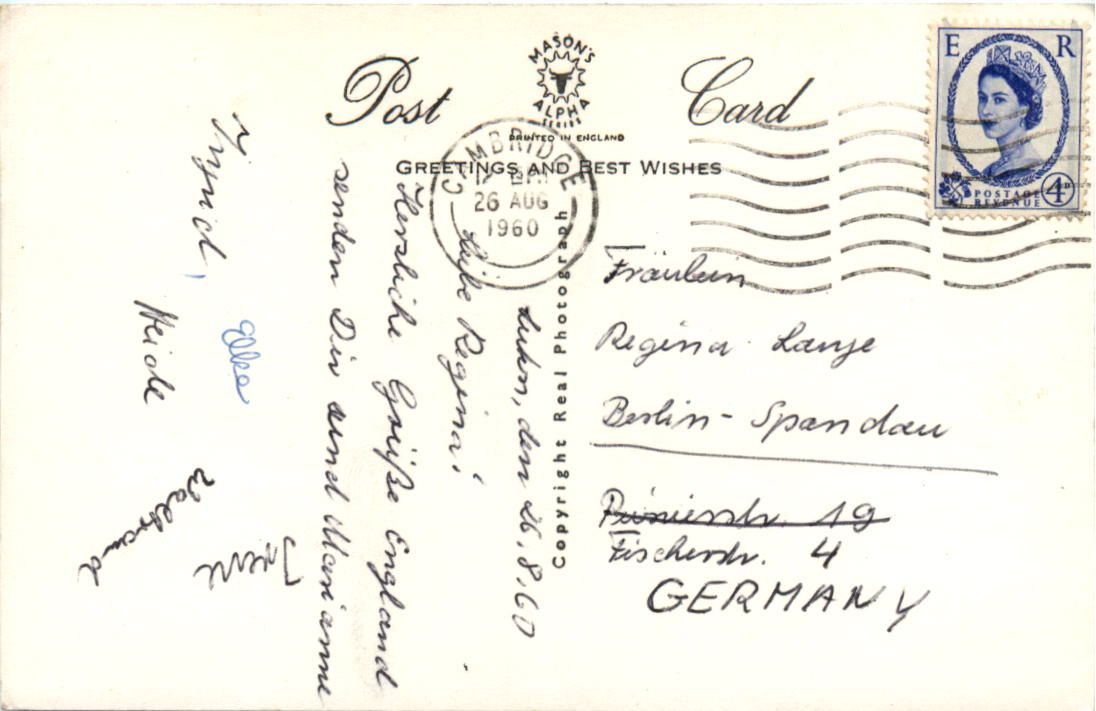 Post Card
MASON'S
ALPHA
SERIES
PRINTED IN ENGLAND
GREETINGS AND BEST WISHES
E R
POSTAGE
REVENUE
4D
CAMBRIDGE
PM
26 AUG
1960
Copyright Real Photograph
den 26.8.60
Liebe Regina!
Herzliche Grüße England
senden Dir und Marianne
Elke
Heide
Waltraud
Fräulein
Regina Lange
Berlin-Spandau
19
Fischerstr. 4
GERMANY